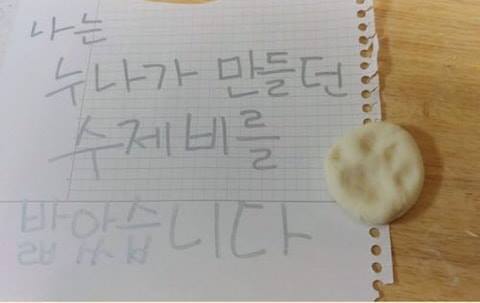 나는
누나가 만들던
수제비를
밟았습니다